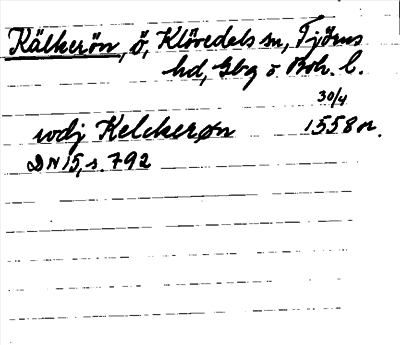 Kälkerön, ö, Klövedals sn, Tjörns
hd, Gbg o. Boh. l.
30/4
wdj Kelckerøn 1558 or.
DN 15, s. 792